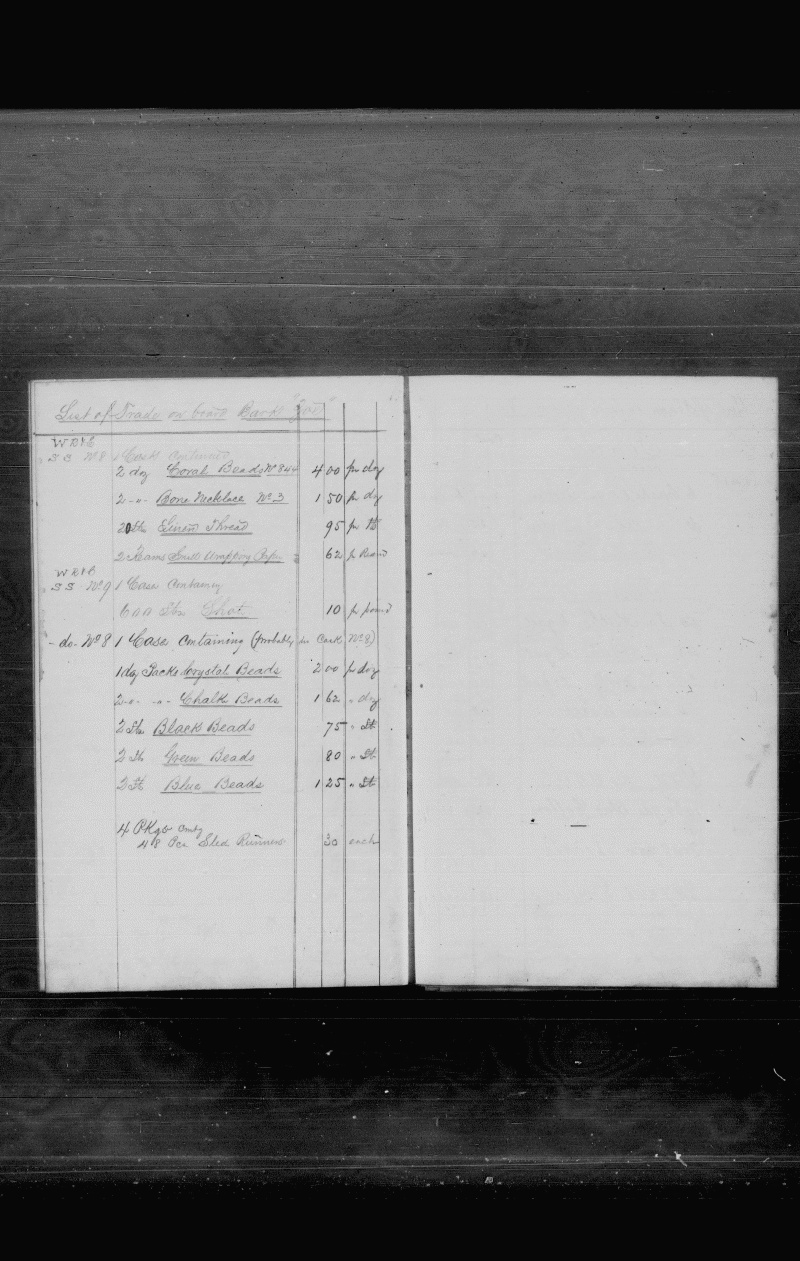 List of Trade on board Bark
W R & B
S S No 8 1 Cask containing
2 doz Coral Beads No 844 4 00 pr doz
2 -"- Bone Necklace No 3 1 50 pr doz
20 lbs Linen Thread 95 pr lb
2 Reams Small Wrapping Paper 62 pr Ream
W R & B
S S No 9 1 Case Containing
600 lbs Shot 10 pr pound
- do - No 8 1 Case Containing (probably in Cask No 8)
1 doz Packs Crystal Beads 2 00 pr doz
2 -"- -"- Chalk Beads 1 62 " doz
2 lbs Black Beads 75 " lb
2 lb Green Beads 80 " lb
2 lb Blue Beads 1 25 " lb
4 Pkgs Contg
48 Pcs Sled Runners 30 each